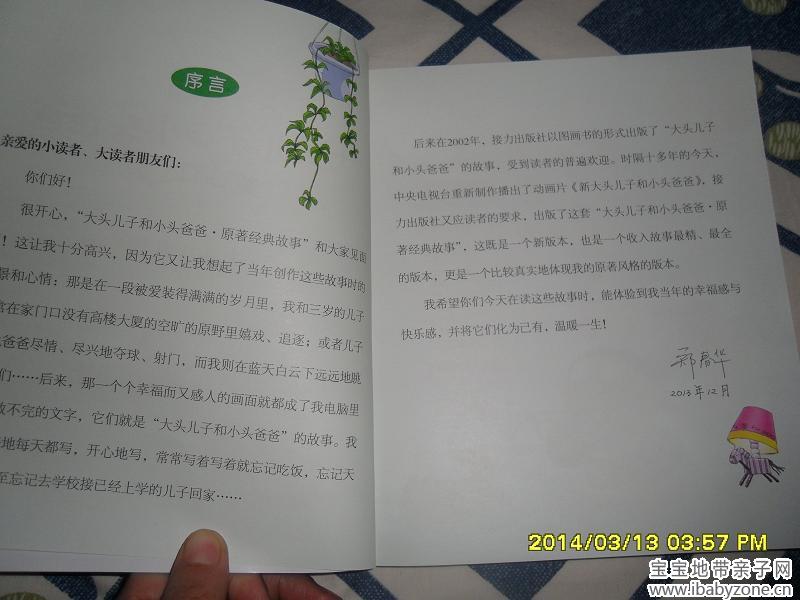 序言
亲爱的小读者、大读者朋友们：
你们好！
很开心，“大头儿子和小头爸爸·原著经典故事”和大家见面
！这让我十分高兴，因为它又让我想起了当年创作这些故事时的
景和心情：那是在一段被爱装得满满的岁月里，我和三岁的儿子
常在家门口没有高楼大厦的空旷的原野里嬉戏、追逐；或者儿子
爸爸尽情、尽兴地夺球、射门，而我则在蓝天白云下远远地眺
们……后来，那一个个幸福而又感人的画面就都成了我电脑里
不完的文字，它们就是“大头儿子和小头爸爸”的故事。我
地每天都写，开心地写，常常写着写着就忘记吃饭，忘记天
至忘记去学校接已经上学的儿子回家……
后来在2002年，接力出版社以图画书的形式出版了“大头儿子
和小头爸爸”的故事，受到读者的普遍欢迎。时隔十多年的今天，
中央电视台重新制作播出了动画片《新大头儿子和小头爸爸》，接
力出版社又应读者的要求，出版了这套“大头儿子和小头爸爸·原
著经典故事”，这既是一个新版本，也是一个收入故事最精、最全
的版本，更是一个比较真实地体现我的原著风格的版本。
我希望你们今天在读这些故事时，能体验到我当年的幸福感与
快乐感，并将它们化为己有，温暖一生！
郑春华
2013年12月
2014/03/13 03:57 PM
宝宝地带亲子网
www.ibabyzone.cn